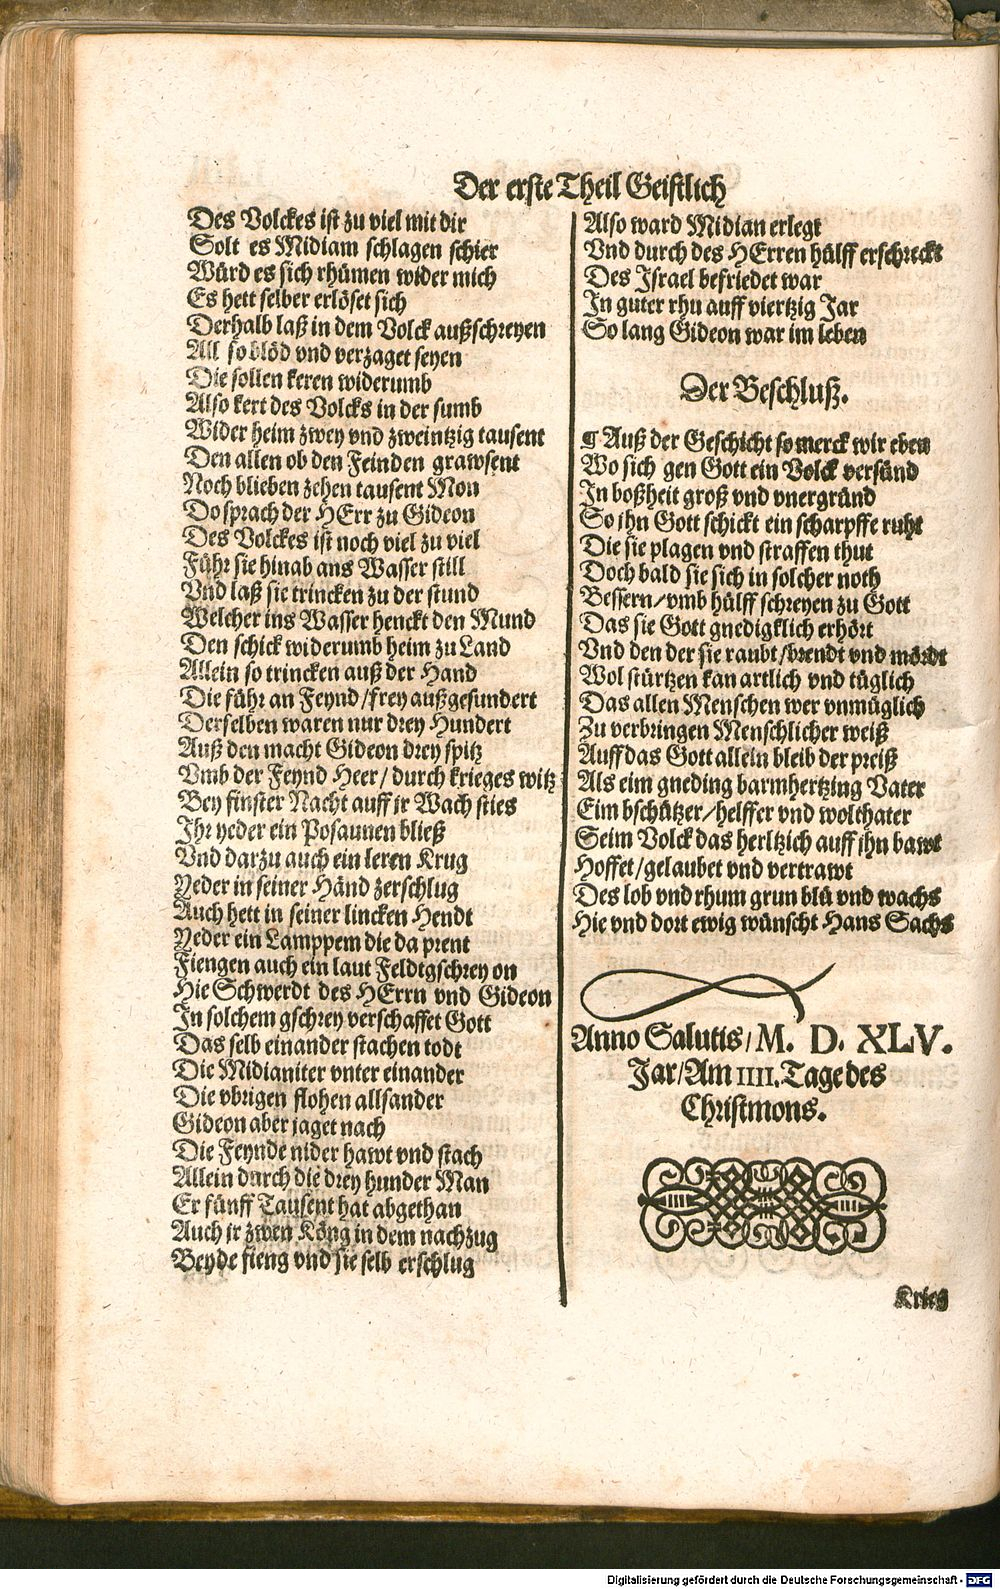 Der erste Theil Geistlich
Des Volckes ist zu viel mit dir
Solt es Midiam schlagen schier
Würd es sich rhümen wider mich
Es hett selber erlöset sich
Derhalb laß in dem Volck außschreyen
All so blöd vnd verzaget seyen
Die sollen keren widerumb
Also kert des Volcks in der sumb
Wider heim zwey vnd zweintzig tausent
Den allen ob den Feinden grawsent
Noch blieben zehen tausent Mon
Do sprach der HErr zu Gideon
Des Volckes ist noch viel zu viel
Führ sie hinab ans Wasser still
Vnd laß sie trincken zu der stund
Welcher ins Wasser henckt den Mund
Den schick widerumb heim zu Land
Allein so trincken auß der Hand
Die führ an Feynd/frey außgesundert
Derselben waren nur drey Hundert
Auß den macht Gideon drey spitz
Vmb der Feynd Heer/ durch krieges witz
Bey finster Nacht auff ir Wach sties
Ihr yeder ein Posaunen bließ
Vnd darzu auch ein leren Krug
Yeder in seiner Händ zerschlug
Auch hett in seiner lincken Hendt
Yeder ein Lamppem die da prent
Fiengen auch ein laut Feldtgschrey on
Hie Schwerdt des HErrn vnd Gideon
In solchem gschrey verschaffet Gott
Das selb einander stachen todt
Die Midianiter vnter einander
Die vbrigen flohen allsander
Gideon aber jaget nach
Die Feynde nider hawt vnd stach
Allein durch die drey hunder Man
Er fünff Tausent hat abgethan
Auch ir zwen Köng in dem nachzug
Beyde fieng vnd sie selb erschlug
Also ward Midian erlegt
Vnd durch des HErren hülff erschreckt
Des Israel befriedet war
In guter rhu auff viertzig Jar
So lang Gideon war im leben
Der Beschluß.
¶ Auß der Geschicht so merck wir eben
Wo sich gen Gott ein Volck versünd
In boßheit groß vnd vnergründ
So ihn Gott schickt ein scharpffe ruht
Die sie plagen vnd straffen thut
Doch bald sie sich in solcher noth
Bessern/vmb hülff schreyen zu Gott
Das sie Gott gnedigklich erhört
Vnd den der sie raubt/brendt vnd mördt
Wol stürtzen kan artlich vnd tüglich
Das allen Menschen wer vnmüglich
Zu verbringen Menschlicher weiß
Auff das Gott allein bleib der preiß
Als eim gneding barmhertzing Vater
Eim bschützer/helffer vnd wolthater
Seim Volck das hertzlich auff ihn bawt
Hoffet/gelaubet vnd vertrawt
Des lob vnd rhum grun blü vnd wachs
Hie vnd dort ewig wünscht Hans Sachs
Anno Salutis/M. D. XLV.
Jar/Am IIII. Tage des
Christmons.
Krieg
Digitalisierung gefördert durch die Deutsche Forschungsgemeinschaft - DFG